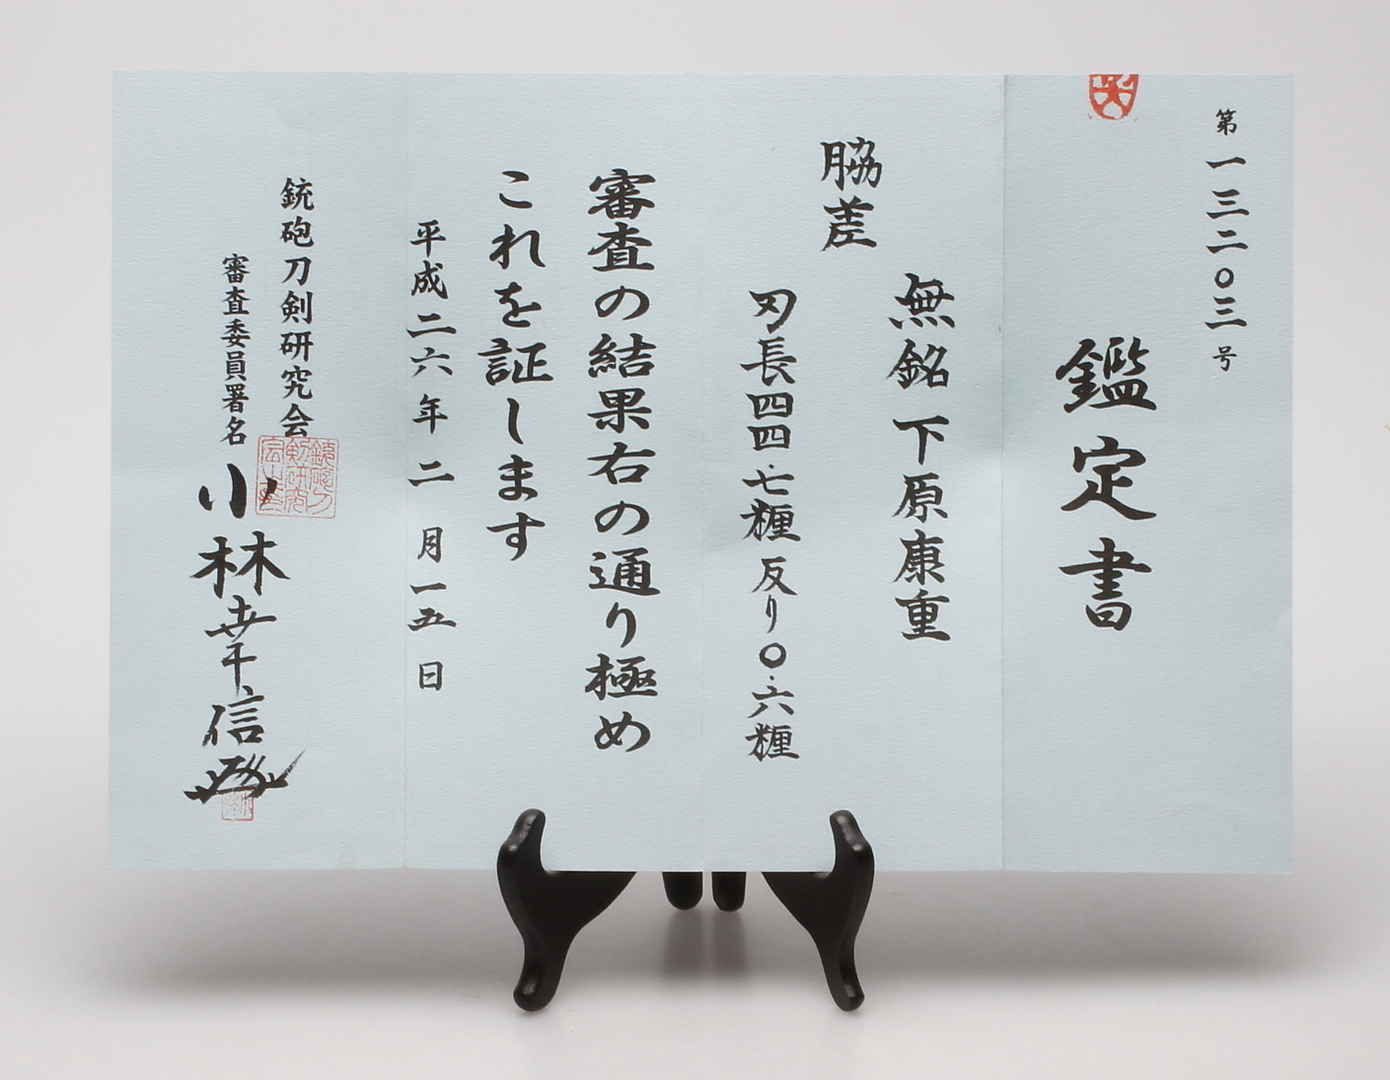 第一三二〇三号
鑑定書
脇差
無銘 下原康重
刃長四四・七糎 反り〇・六糎
審査の結果右の通り極め
これを証します
平成二六年二月一五日
銃砲刀剣研究会
審査委員署名
小林
信
銃砲刀剣研究会